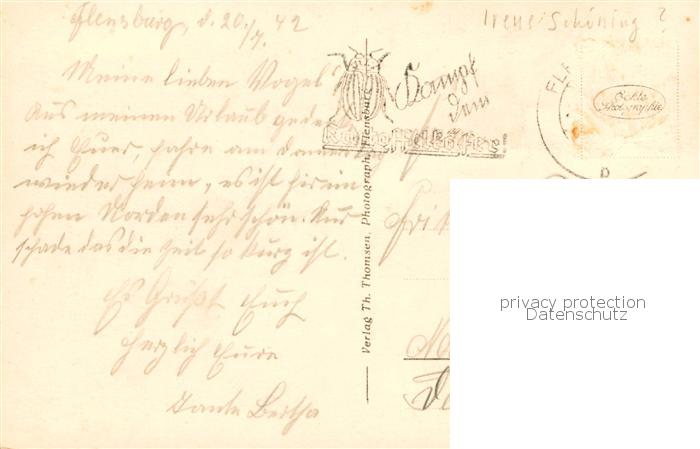 Flensburg, d. 20./7. 42
Irene Schöning ?
Meine lieben Vogel
Aus meinen Urlaub gedenk
ich Euer, fahre am Donnerstag
wieder heim, es ist hir im
hohen Norden sehr schön. Nur
schade das die Zeit so kurz ist.
Es Grüßt Euch
herzlich Eure
Tante Bertha
Kampf
dem
Kartoffelkäfer!
Verlag Th. Thomsen, Photograph, Flensburg
FLE
Echte
Photographie
p
Frit
privacy protection
Datenschutz